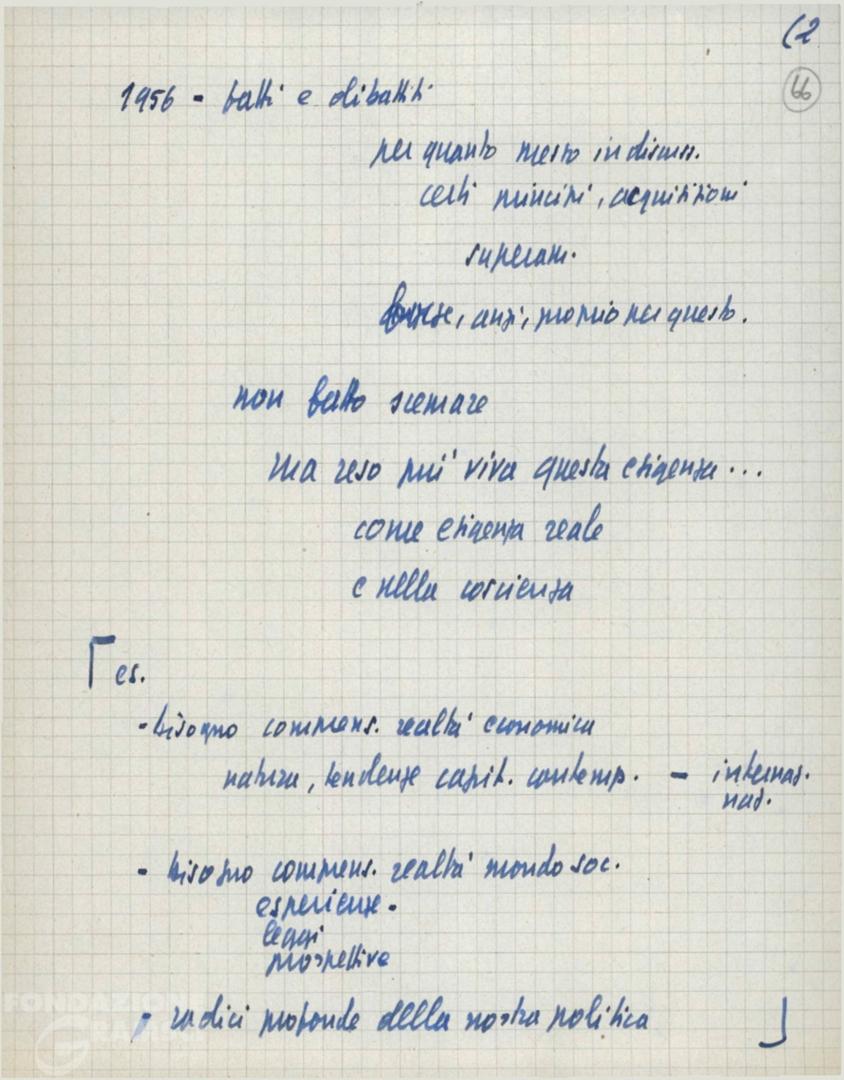 (2
66
1956 - fatti e dibattiti
per quanto messo in discuss.
certi principi, acquisizioni
superam.
forse, anzi, proprio per questo.
non fatto scemare
ma reso più viva questa esigenza...
come esigenza reale
e nella coscienza
es.
- bisogno comprens. realtà economica
natura, tendenze capit. contemp. - internaz.
naz.
- bisogno comprens. realtà mondo soc.
esperienze.
leggi
prospettive
- radici profonde della nostra politica
FONDAZIONE
GRAMSCI